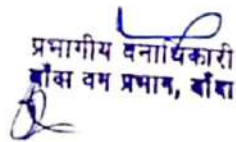 प्रभागीय वनाधिकारी
बाँदा वन प्रभाग, बाँदा